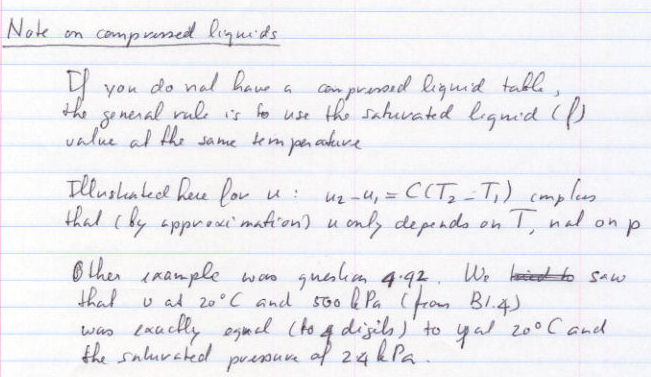 Note on compressed liquids
If you do not have a compressed liquid table,
the general rule is to use the saturated liquid (f)
value at the same temperature
Illustrated here for u : u₂-u₁ = C(T₂-T₁) implies
that (by approximation) u only depends on T, not on p
Other example was question 4.92. We tried to saw
that v at 20°C and 500 kPa (from B1.4)
was exactly equal (to 4 digits) to vf at 20°C and
the saturated pressure of 2.4 kPa.